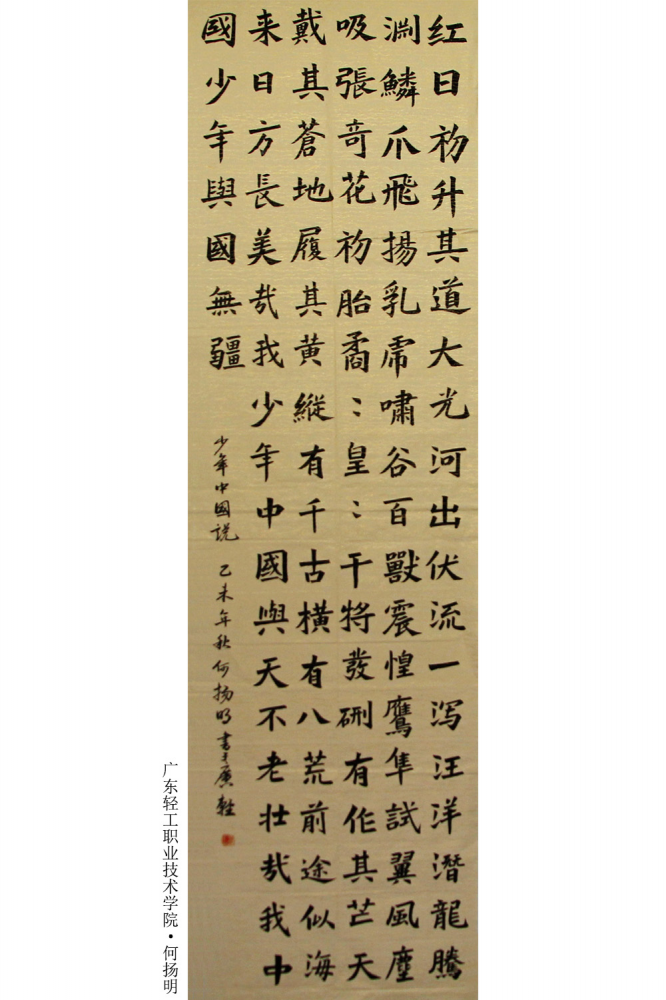 红日初升其道大光河出伏流一泻汪洋潜龍騰
渊鱗爪飛揚乳虎嘯谷百獸震惶鷹隼試翼風塵
吸張奇花初胎矞〻皇〻干將發硎有作其芒天
戴其蒼地履其黄縱有千古横有八荒前途似海
来日方長美哉我少年中國與天不老壮哉我中
國少年與國無疆
少年中國説 乙未年秋何扬明書于廣輕
广东轻工职业技术学院·何扬明